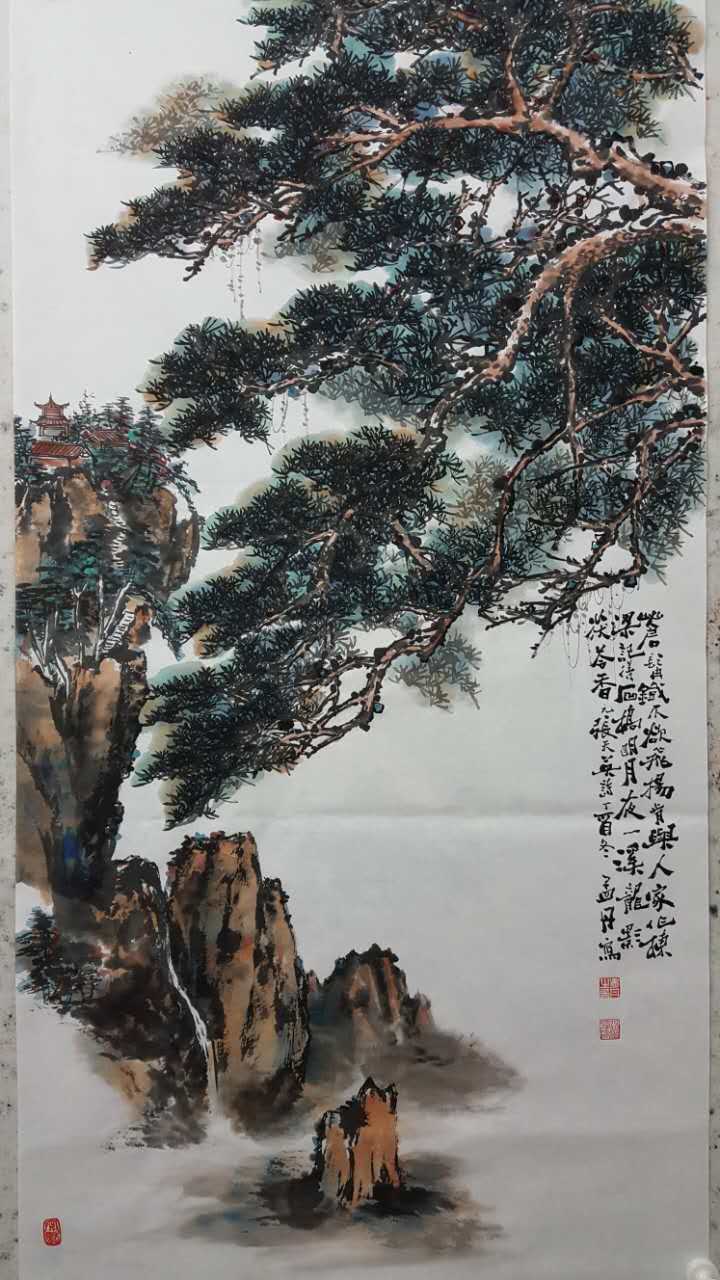 蒼髯鐵爪欲飛揚肯與人家作棟
梁記得西橋明月夜一溪龍影
茯苓香 元張天英詩 丁酉冬 寫